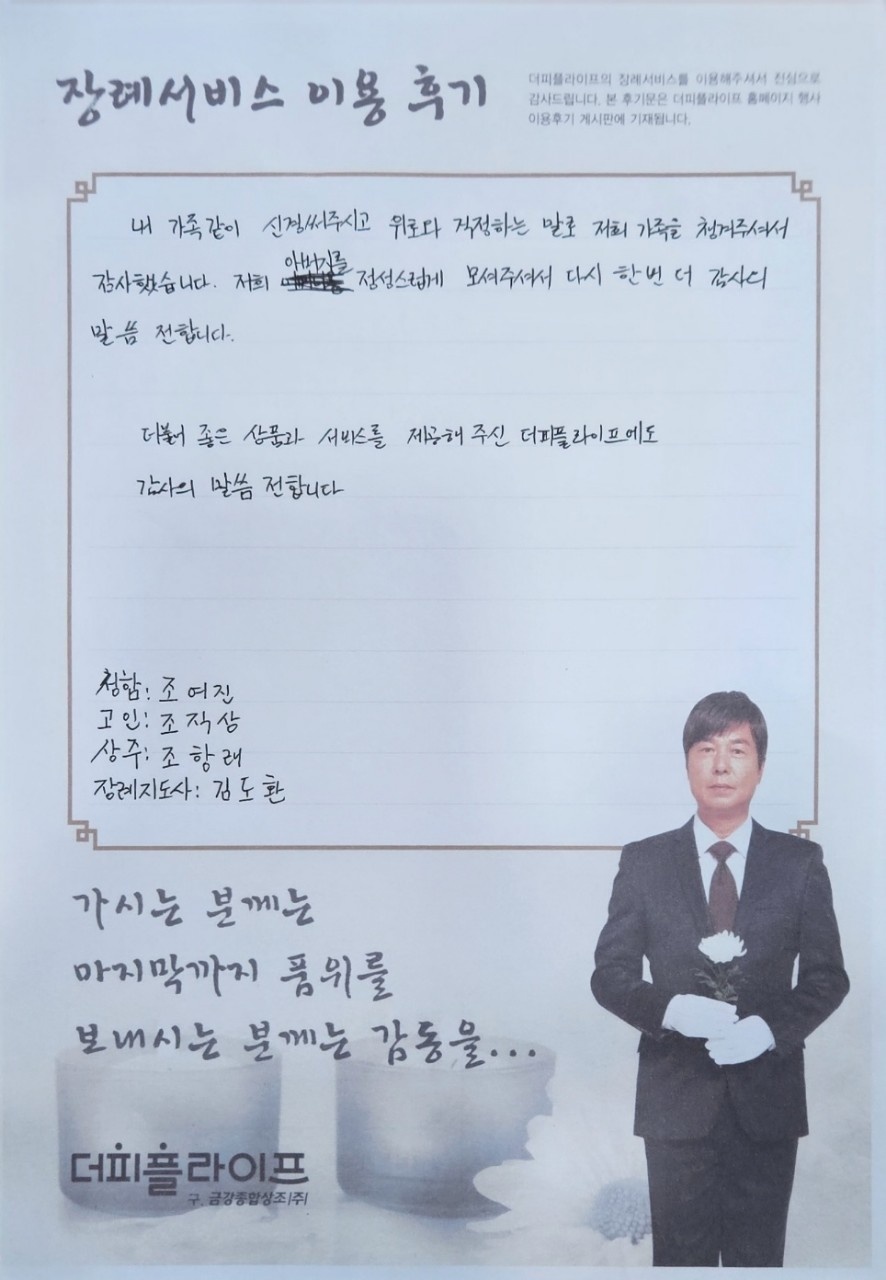 장례서비스 이용 후기
더피플라이프의 장례서비스를 이용해주셔서 진심으로
감사드립니다. 본 후기문은 더피플라이프 홈페이지 행사
이용후기 게시판에 기재됩니다.
내 가족같이 신경써주시고 위로와 걱정하는 말로 저희 가족을 챙겨주셔서
감사했습니다. 저희 아버지를 정성스럽게 모셔주셔서 다시 한번 더 감사의
말씀 전합니다.
더불어 좋은 상품과 서비스를 제공해 주신 더피플라이프에도
감사의 말씀 전합니다
성함: 조여진
고인: 조직상
상주: 조항래
장례지도사: 김도환
가시는 분께는
마지막까지 품위를
보내시는 분께는 감동을...
더피플라이프
구. 금강종합상조(주)